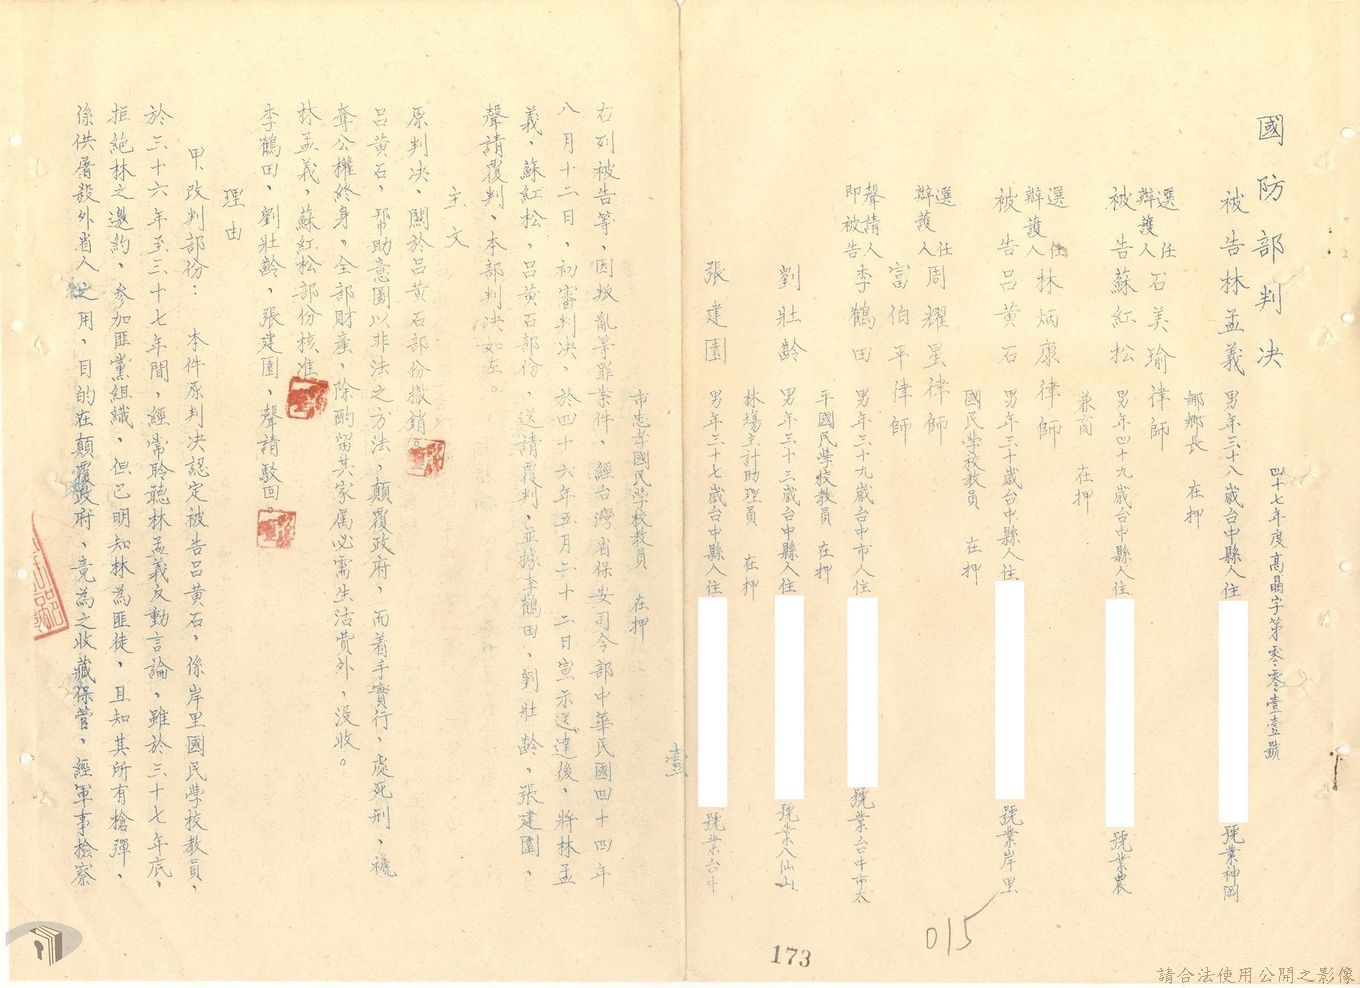 國防部判决
四十七年度高晶字第零零壹壹號
被告林孟義 男年三十八歲台中縣人住
號業神岡
鄉鄉長 在押
選任辯護人石美瑜律師
被告蘇紅松 男年四十九歲台中縣人住
號業農
兼商 在押
選任辯護人林炳康律師
被告呂黄石 男年三十歲台中縣人住
號業岸里
國民學校教員 在押
選任辯護人周耀星律師
富伯平律師
聲請人即被告李鶴田 男年三十九歲台中市人住
號業台中市太
平國民學校教員 在押
劉壯齡 男年三十三歲台中縣人住
號業八仙山
林場主計助理員 在押
張建園 男年三十七歲台中縣人住
號業台中
壹
市忠孝國民學校教員 在押
右列被告等，因叛亂等罪案件，經台灣省保安司令部中華民國四十四年
八月十二日，初審判决，於四十六年五月二十二日宣示送達後，將林孟
義，蘇紅松，呂黄石部份，送請覆判，並據李鶴田，劉壯齡，張建園，
聲請覆判，本部判决如左。
主文
原判决，關於呂黄石部份撤銷。
呂黄石，帮助意圖以非法之方法，顛覆政府，而着手實行，處死刑，褫
奪公權終身，全部財產，除酌留其家屬必需生活費外，没收。
林孟義，蘇紅松部份核准。
李鶴田，劉壯齡，張建園，聲請駁回。
理由
甲、改判部份： 本件原判决認定被告呂黄石，係岸里國民學校教員，
於三十六年至三十七年間，經常聆聽林孟義反動言論，雖於三十七年底，
拒絶林之邀約，参加匪黨組織，但已明知林為匪徒，且知其所有槍彈，
係供屠殺外省人之用，目的在顛覆政府，竟為之收藏保管，經軍事檢察
015
173
請合法使用公開之影像